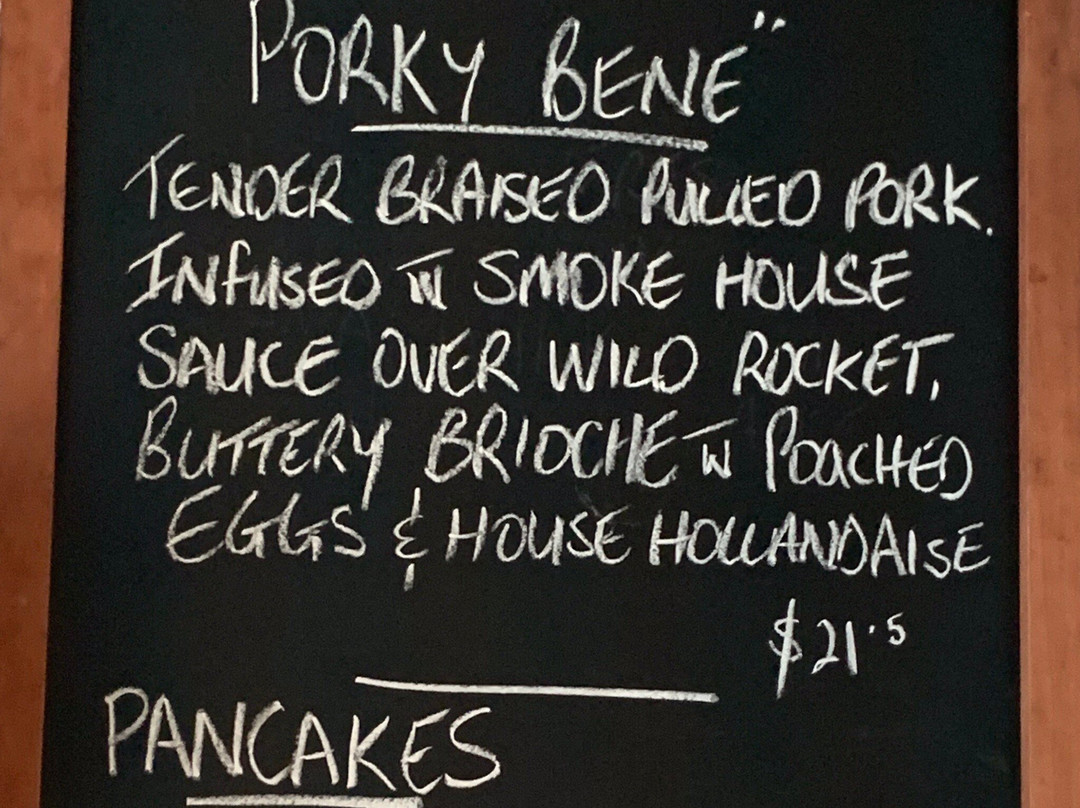 PORKY BENE"
TENDER BRAISED PULLED PORK.
INFUSED IN SMOKE HOUSE
SAUCE OVER WILD ROCKET,
BUTTERY BRIOCHE W POACHED
EGGS & HOUSE HOLLANDAISE
$21.5
PANCAKES